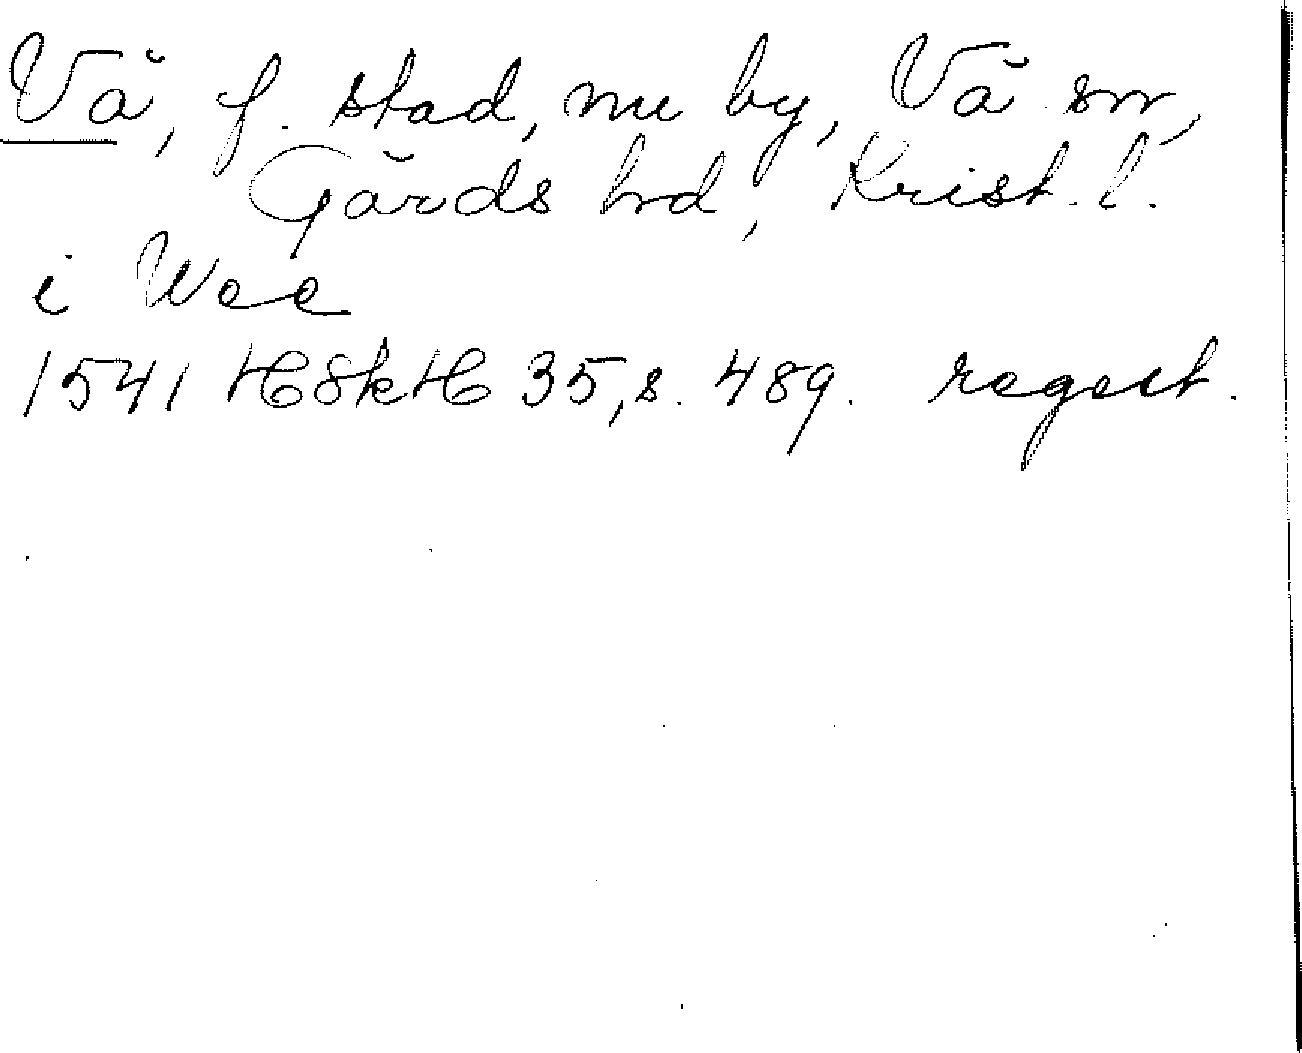 Vå, f. stad, nu by, Vå sn,
Gärds hd, Krist. l.
i Wee
1541 HSkH 35, s. 489. regest.